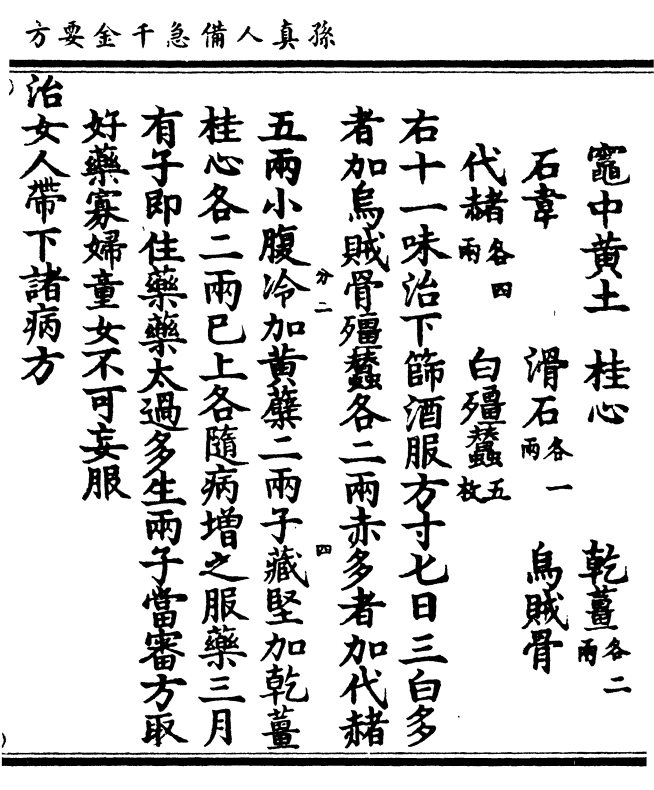 孫真人備急千金要方
竈中黄土　桂心　乾薑各二兩
石韋　滑石各一兩　烏賊骨
代赭各四兩　白殭蠶五枚
右十一味治下篩酒服方寸匕日三白多
者加烏賊骨殭蠶各二兩赤多者加代赭
五兩小腹冷加黄蘗二兩子藏堅加乾薑
分二
四
桂心各二兩已上各隨病增之服藥三月
有子即住藥藥太過多生兩子當審方取
好藥寡婦童女不可妄服
治女人帶下諸病方